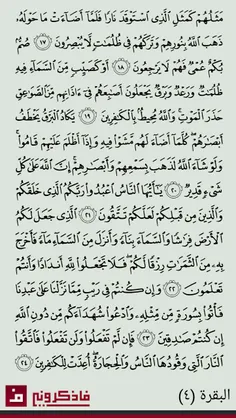 مَثَلُهُمْ كَمَثَلِ ٱلَّذِى ٱسْتَوْقَدَ نَارًا فَلَمَّآ أَضَآءَتْ مَا حَوْلَهُۥ
ذَهَبَ ٱللَّهُ بِنُورِهِمْ وَتَرَكَهُمْ فِى ظُلُمَٰتٍ لَّا يُبْصِرُونَ ١٧ صُمٌّۢ
بُكْمٌ عُمْىٌ فَهُمْ لَا يَرْجِعُونَ ١٨ أَوْ كَصَيِّبٍ مِّنَ ٱلسَّمَآءِ فِيهِ
ظُلُمَٰتٌ وَرَعْدٌ وَبَرْقٌ يَجْعَلُونَ أَصَٰبِعَهُمْ فِىٓ ءَاذَانِهِم مِّنَ ٱلصَّوَٰعِقِ
حَذَرَ ٱلْمَوْتِ وَٱللَّهُ مُحِيطٌۢ بِٱلْكَٰفِرِينَ ١٩ يَكَادُ ٱلْبَرْقُ يَخْطَفُ
أَبْصَٰرَهُمْ كُلَّمَآ أَضَآءَ لَهُم مَّشَوْا۟ فِيهِ وَإِذَآ أَظْلَمَ عَلَيْهِمْ قَامُوا۟
وَلَوْ شَآءَ ٱللَّهُ لَذَهَبَ بِسَمْعِهِمْ وَأَبْصَٰرِهِمْ إِنَّ ٱللَّهَ عَلَىٰ كُلِّ
شَىْءٍ قَدِيرٌ ٢٠ يَٰٓأَيُّهَا ٱلنَّاسُ ٱعْبُدُوا۟ رَبَّكُمُ ٱلَّذِى خَلَقَكُمْ
وَٱلَّذِينَ مِن قَبْلِكُمْ لَعَلَّكُمْ تَتَّقُونَ ٢١ ٱلَّذِى جَعَلَ لَكُمُ
ٱلْأَرْضَ فِرَٰشًا وَٱلسَّمَآءَ بِنَآءً وَأَنزَلَ مِنَ ٱلسَّمَآءِ مَآءً فَأَخْرَجَ
بِهِۦ مِنَ ٱلثَّمَرَٰتِ رِزْقًا لَّكُمْ فَلَا تَجْعَلُوا۟ لِلَّهِ أَندَادًا وَأَنتُمْ
تَعْلَمُونَ ٢٢ وَإِن كُنتُمْ فِى رَيْبٍ مِّمَّا نَزَّلْنَا عَلَىٰ عَبْدِنَا
فَأْتُوا۟ بِسُورَةٍ مِّن مِّثْلِهِۦ وَٱدْعُوا۟ شُهَدَآءَكُم مِّن دُونِ ٱللَّهِ
إِن كُنتُمْ صَٰدِقِينَ ٢٣ فَإِن لَّمْ تَفْعَلُوا۟ وَلَن تَفْعَلُوا۟ فَٱتَّقُوا۟
ٱلنَّارَ ٱلَّتِى وَقُودُهَا ٱلنَّاسُ وَٱلْحِجَارَةُ أُعِدَّتْ لِلْكَٰفِرِينَ ٢٤
البقرة (٤) فاذكروني